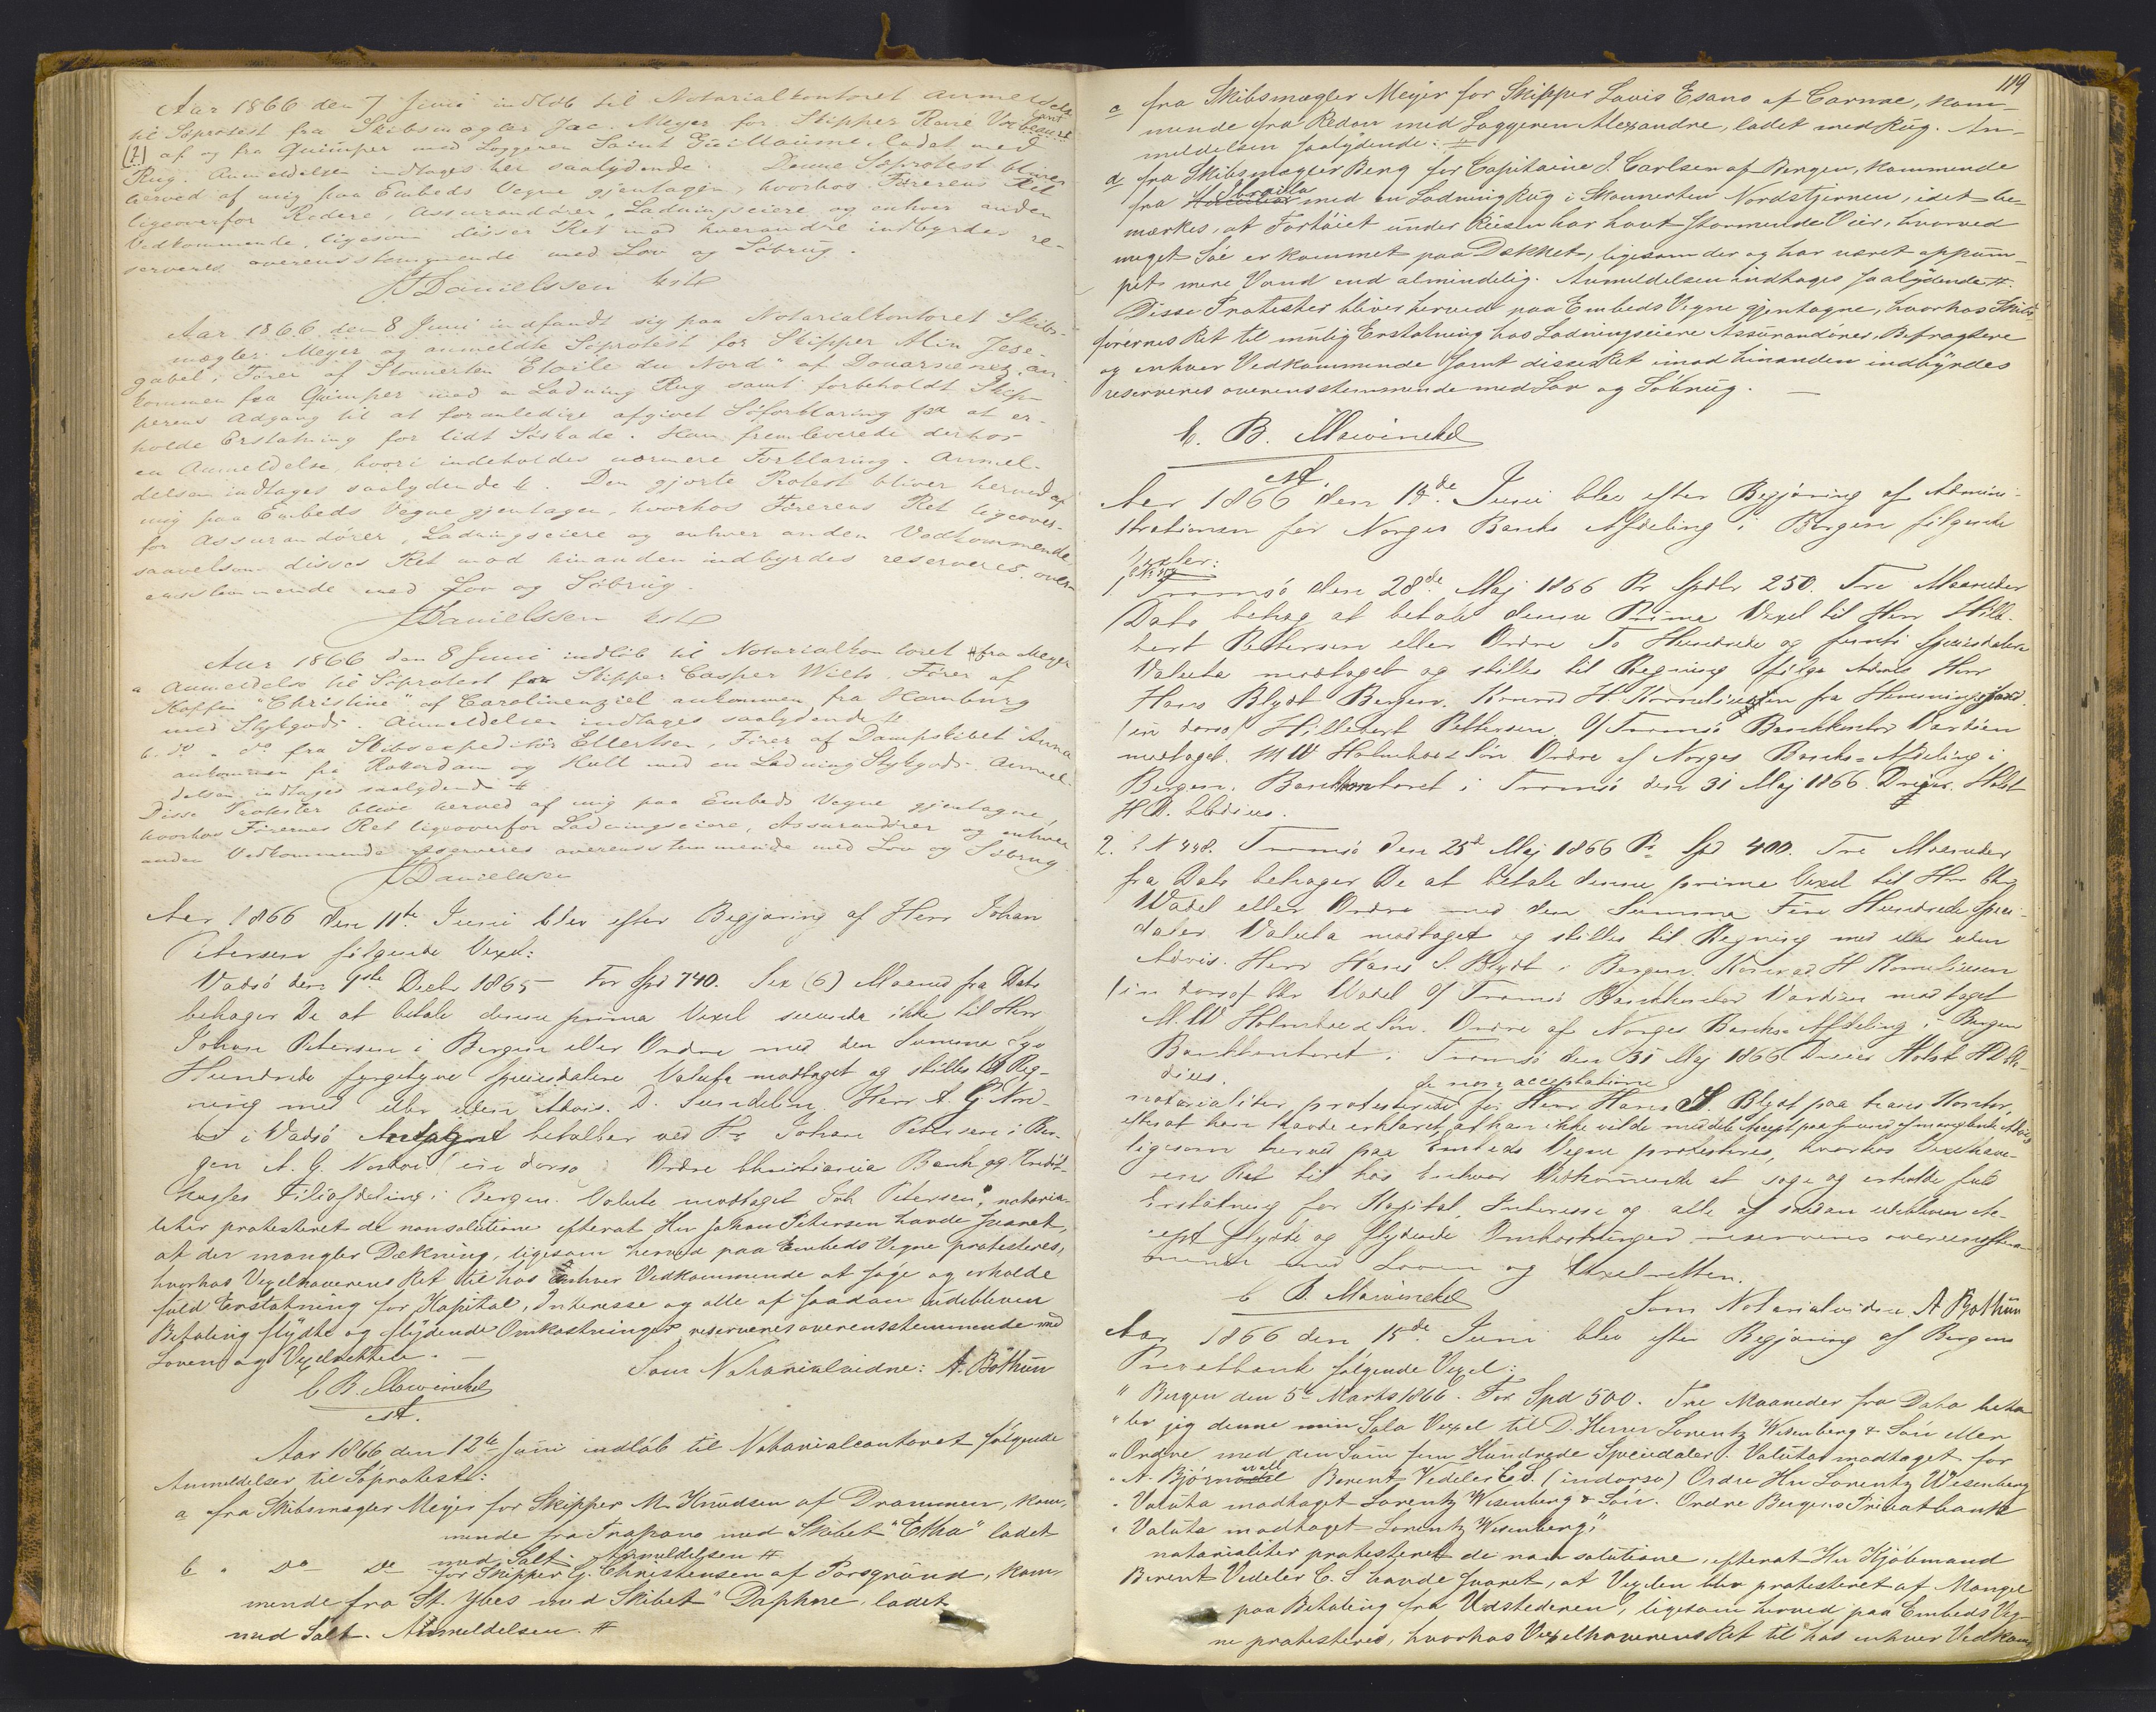 Aar 1866 den 7 Juni indløb til Notarialkontoret Anmeldelse
til Søprotest fra Skibsmægler Jac. Meyer for Skipper René
(?) af og fra Quimper med Loggeren Saint Guillaume, ladet med
Rug. Anmeldelsen indtages her saalydende. Denne Søprotest bliver
herved af mig paa Embeds Vegne gjentagen, hvorhos Førerens Ret
ligeoverfor Redere, Assurandører, Ladningseiere og enhver anden
Vedkommende, ligesom disses Ret mod hverandre indbyrdes re-
serveres overensstemmende med Lov og Søbrug.
JDanielssen
Aar 1866 den 8 Juni indfandt sig paa Notarialkontoret Skibs-
mægler Meyer og anmeldte Søprotest for Skipper Alin Jese-
gabel, Fører af Skonnerten "Etoile du Nord" af Douarnenez, an-
kommen fra Quimper med en Ladning Rug samt forbeholdt Skip-
perens Adgang til at foranledige afgivet Søforklaring for at er-
holde Erstatning for lidt Søskade. Han fremleverede derhos
en Anmeldelse, hvori indeholdes nærmere Forklaring. Anmel-
delsen indtages saalydende #. Den gjorte Protest bliver herved af
mig paa Embeds Vegne gjentagen, hvorhos Førerens Ret ligeover-
for Assurandører, Ladningseiere og enhver anden Vedkommende,
saavelsom disses Ret mod hinanden indbyrdes reserveres over-
ensstemmende med Lov og Søbrug.
JDanielssen
Aar 1866 den 8 Juni indløb til Notarialkontoret # fra Meyer
a Anmeldelse til Søprotest for Skipper Casper Wilts, Fører af
Koffen "Christine" af Carolinenziel ankommen fra Hamburg
med Stykgods. Anmeldelsen indtages saalydende #
b. do - do fra Skibsexpeditør Ellertsen, Fører af Dampskibet Anna
ankommen fra Rotterdam og Hull med en Ladning Stykgods. Anmel-
delsen indtages saalydende #
Disse Protester blive herved af mig paa Embeds Vegne gjentagne,
hvorhos Førernes Ret ligeoverfor Ladningseiere, Assurandører og enhver
anden Vedkommende reserveres overensstemmende med Lov og Søbrug
JDanielssen
Aar 1866 den 11te Juni blev efter Begjæring af Herr Johan
Petersen følgende Vexel:
Vadsø den 9de Decbr 1865 - For Spd 740. Sex (6) Maaned fra Dato
behager De at betale denne prima Vexel secunda ikke til Herr
Johan Petersen i Bergen eller Ordre med den Summa Syv
Hundrede fyrgetyve Speciesdalere Valuta modtaget og stilles til Reg-
ning med eller uden Advis. D. Sundelin Herr A. G. Nord-
i Vadsø Antaget betalbar ved Hr Johan Petersen i Ber-
gen A. G. (in dorso) Ordre Christiania Bank og Kredit-
kasses Filialafdeling i Bergen. Valuta modtaget Joh Petersen", notaria-
liter protesteret de non solutione efterat Hr Johan Petersen havde svaret,
at der mangler Dækning, ligesom herved paa Embeds Vegne protesteres,
hvorhos Vexelhaverens Ret til hos enhver Vedkommende at søge og erholde
fuld Erstatning for Kapital, Interesse og alle af saadan udebleven
Betaling flydte og flydende Omkostninger reserveres overensstemmende med
Loven og Vexelretten. —
C B. Mowinckel
cst.
Som Notarialvidne: A. Bøthun
Aar 1866 den 12te Juni indløb til Notarialcontoret følgende
Anmeldelser til Søprotest:
a fra Skibsmægler Meyer for Skipper M. Knudsen af Drammen, kom-
mende fra Trapano med Skibet "Etha" ladet
med Salt. Anmeldelsen #
b " Do De for Skipper G. Christensen af Porsgrund, kom-
mende fra St. Ybes med Skibet "Daphne, ladet
med Salt. Anmeldelsen. #
119
c fra Skibsmægler Meyer for Skipper Louis Esano af Carnac, kom-
mende fra Redon med Loggeren Alexandre, ladet med Rug. An-
meldelsen saalydende: #
d fra Skibsmægler Berg for Capitaine J. Carlsen af Bergen, kommende
fra Ibraila med en Ladning Rug i Skonnerten Nordstjernen, idet be-
mærkes, at Fartøiet under Reisen har havt stormende Veir, hvorved
meget Søe er kommet paa Dækket, ligesom der og har været oppum-
pet mere Vand end almindelig. Anmeldelsen indtages saalydende #.
Disse Protester bliver herved paa Embeds Vegne gjentagne, hvorhos Skibs-
førernes Ret til mulig Erstatning hos Ladningseiere Assurandører, Befragtere
og enhver Vedkommende samt disses Ret imod hinanden indbyrdes
reserveres overensstemmende med Lov og Søbrug. —
C. B. Mowinckel
cst.
Aar 1866 den 14de Juni blev efter Begjæring af Admini-
strationen for Norges Banks Afdeling i Bergen følgende
Vexler:
1, Tromsø den 28de Maj 1866 Pr Spdlr 250. Tre Maaneder
Dato behag at betale denne Prima Vexel til Herr Hille-
bert Pettersen eller Ordre To Hundrede og femti Speciesdaler
Valuta modtaget og stilles til Regning ifølge Advis Herr
Hans Blydt Bergen. Konrad H. Korneliussen fra Hemningsjord.
(in dorso) Hillebert Pettersen. O/ Tromsø Bankkontor Værdien
modtaget. M W Holmboe & Søn Ordre af Norges Banks-Afdeling i
Bergen. Bankkontoret i Tromsø den 31 Maj 1866. Dreyer. Holst
H D.
2. No 448. Tromsø den 25de Maj 1866 Pr Spd 400. Tre Maaneder
fra Dato behager De at betale denne prima Vexel til Herr Chr
Wadel eller Ordre med den Summa Fire Hundrede Speci-
daler. Valuta modtaget og stilles til Regning med eller uden
Advis. Herr Hans S. Blydt i Bergen. Konrad H. Korneliussen
(in dorso) Chr Wadel O/ Tromsø Bankkontor Værdien modtaget
M. W Holmboe & Søn. Ordre af Norges Banks-Afdeling i Bergen
Bankkontoret i Tromsø den 31 Maj 1866 Dreier Holst H D

de non acceptatione
notarialiter protesteret for Herr Hans S. Blydt paa hans Kontor,
efterat han havde erklæret, at han ikke vilde meddele Accept paa Grund af manglende Advis
ligesom herved paa Embeds Vegne protesteres, hvorhos Vexelhave-
rens Ret til hos Enhver Vedkommende at søge og erholde fuld
Erstatning for Kapital, Interesse og alle af saadan udebleven Ac-
cept flydte og flydende Omkostninger reserveres overensstem-
mende med Loven og Vexelretten.
C B. Mowinckel
Som Notarialvidne A Bøthun
Aar 1866 den 15de Juni blev efter Begjæring af Bergens
Privatbank følgende Vexel:
" Bergen den 5te Marts 1866. For Spd 500. Tre Maaneder fra Dato beta-
" ler jeg denne min Sola Vexel til D. Herrer Lorentz Wesenberg & Søn eller
" Ordre med den Sum fem Hundrede Speciedaler. Valuta modtaget for
" A. Bjørnwall Berent Vedeler C. S. (indorso) Ordre Hr Lorentz Wesenberg
" Valuta modtaget Lorentz Wesenberg & Søn. Ordre Bergens Privatbank
" Valuta modtaget Lorentz Wesenberg",
notarialiter protesteret de non solutione, efterat Hr Kjøbmand
Berent Vedeler C. S havde svaret, at Vexlen blev protesteret af Mangel
paa Betaling fra Udstederen, ligesom herved paa Embeds Veg-
ne protesteres, hvorhos Vexelhaverens Ret til hos enhver Vedkom-